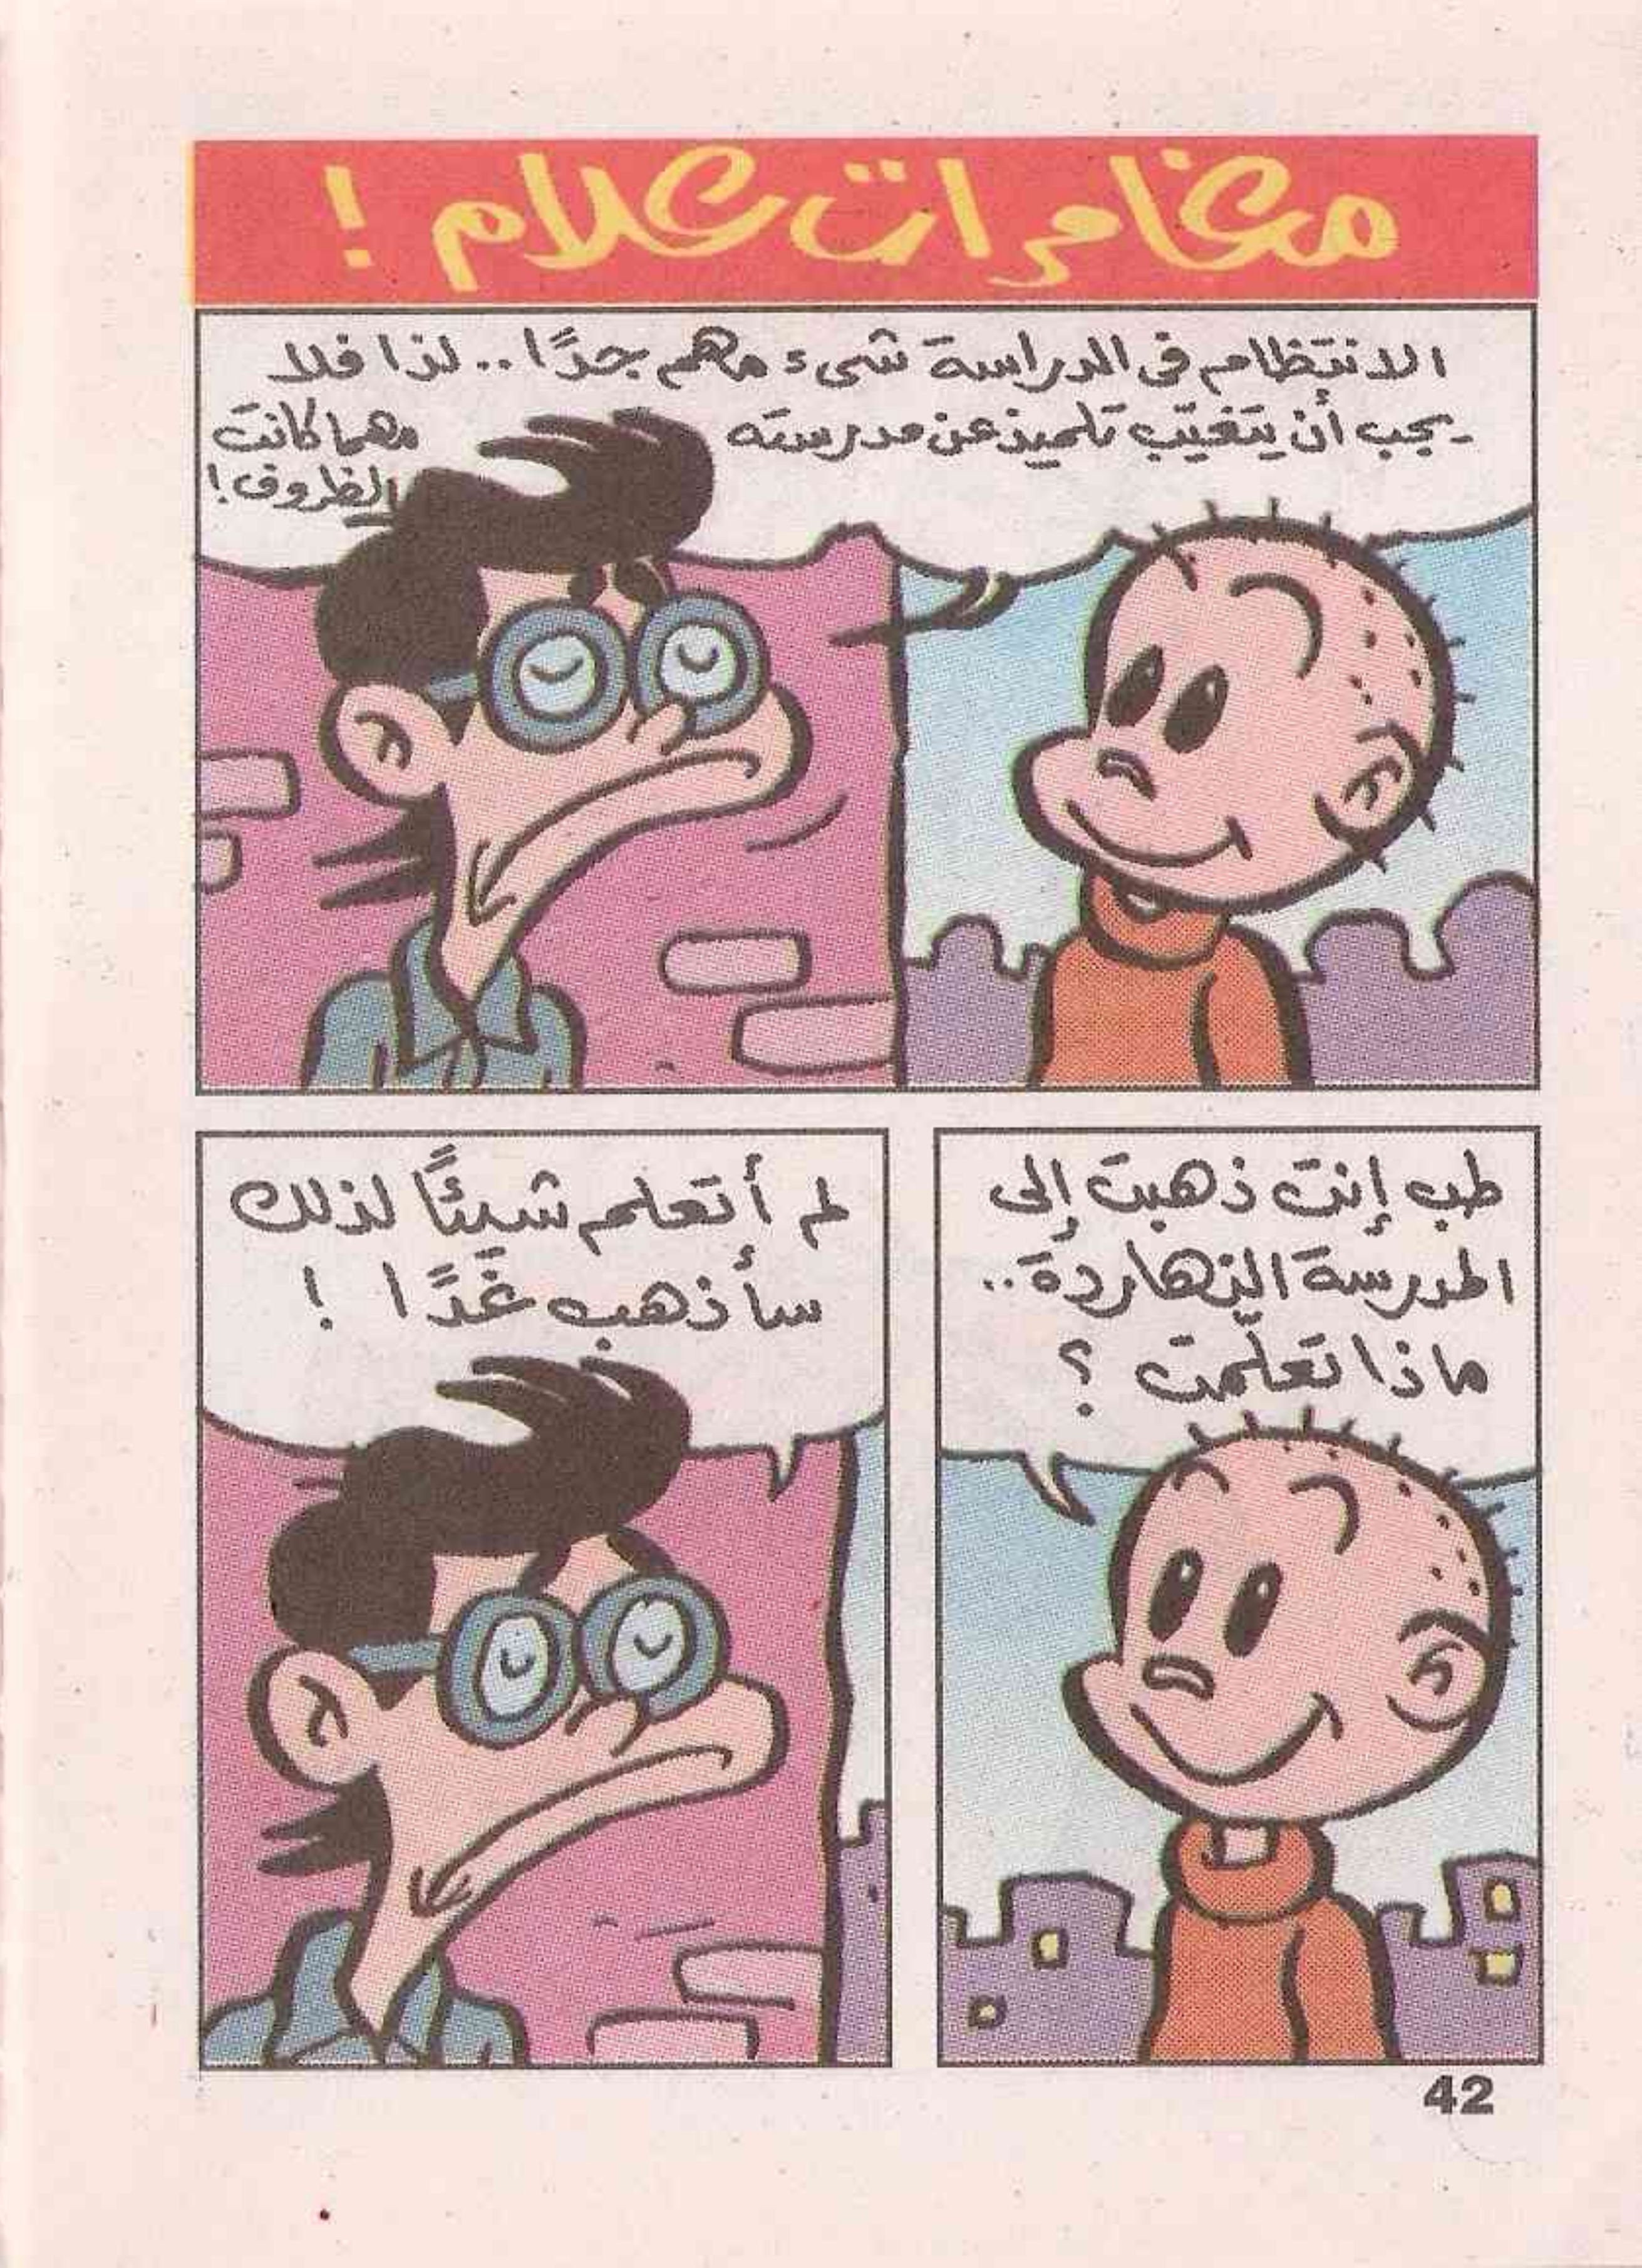 مغامرات علام !
الانتظام فى الدراسة شىء مهم جدًا .. لذا فلا
يجب أن يتغيّب تلميذ عن مدرسته مهما كانت
الظروف !
طب إنت ذهبت إلى
المدرسة النهاردة ..
ماذا تعلّمت ؟
لم أتعلم شيئًا لذلك
سأذهب غَدًا !
42